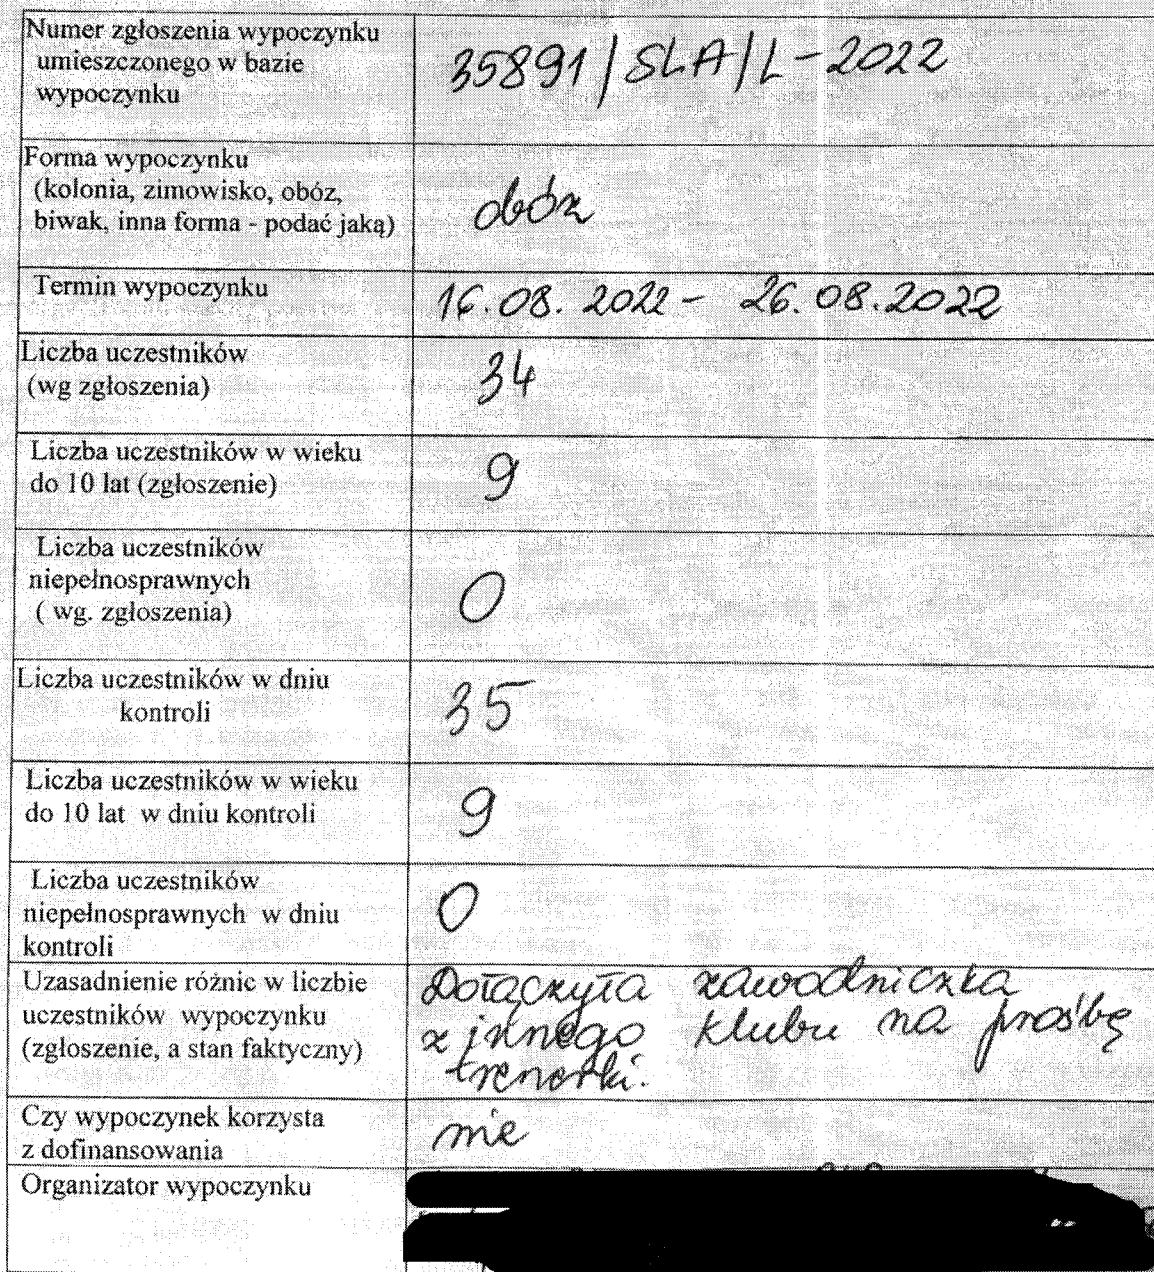 Numer zgłoszenia wypoczynku
umieszczonego w bazie
wypoczynku
35891/SLA/L-2022
Forma wypoczynku
(kolonia, zimowisko, obóz,
biwak, inna forma - podać jaką)
obóz
Termin wypoczynku
16.08.2022 - 26.08.2022
Liczba uczestników
(wg zgłoszenia)
34
Liczba uczestników w wieku
do 10 lat (zgłoszenie)
9
Liczba uczestników
niepełnosprawnych
( wg. zgłoszenia)
0
Liczba uczestników w dniu
kontroli
35
Liczba uczestników w wieku
do 10 lat w dniu kontroli
9
Liczba uczestników
niepełnosprawnych w dniu
kontroli
0
Uzasadnienie różnic w liczbie
uczestników wypoczynku
(zgłoszenie, a stan faktyczny)
Dołączyła zawodniczka
z innego klubu na prośbę
trenerki.
Czy wypoczynek korzysta
z dofinansowania
nie
Organizator wypoczynku